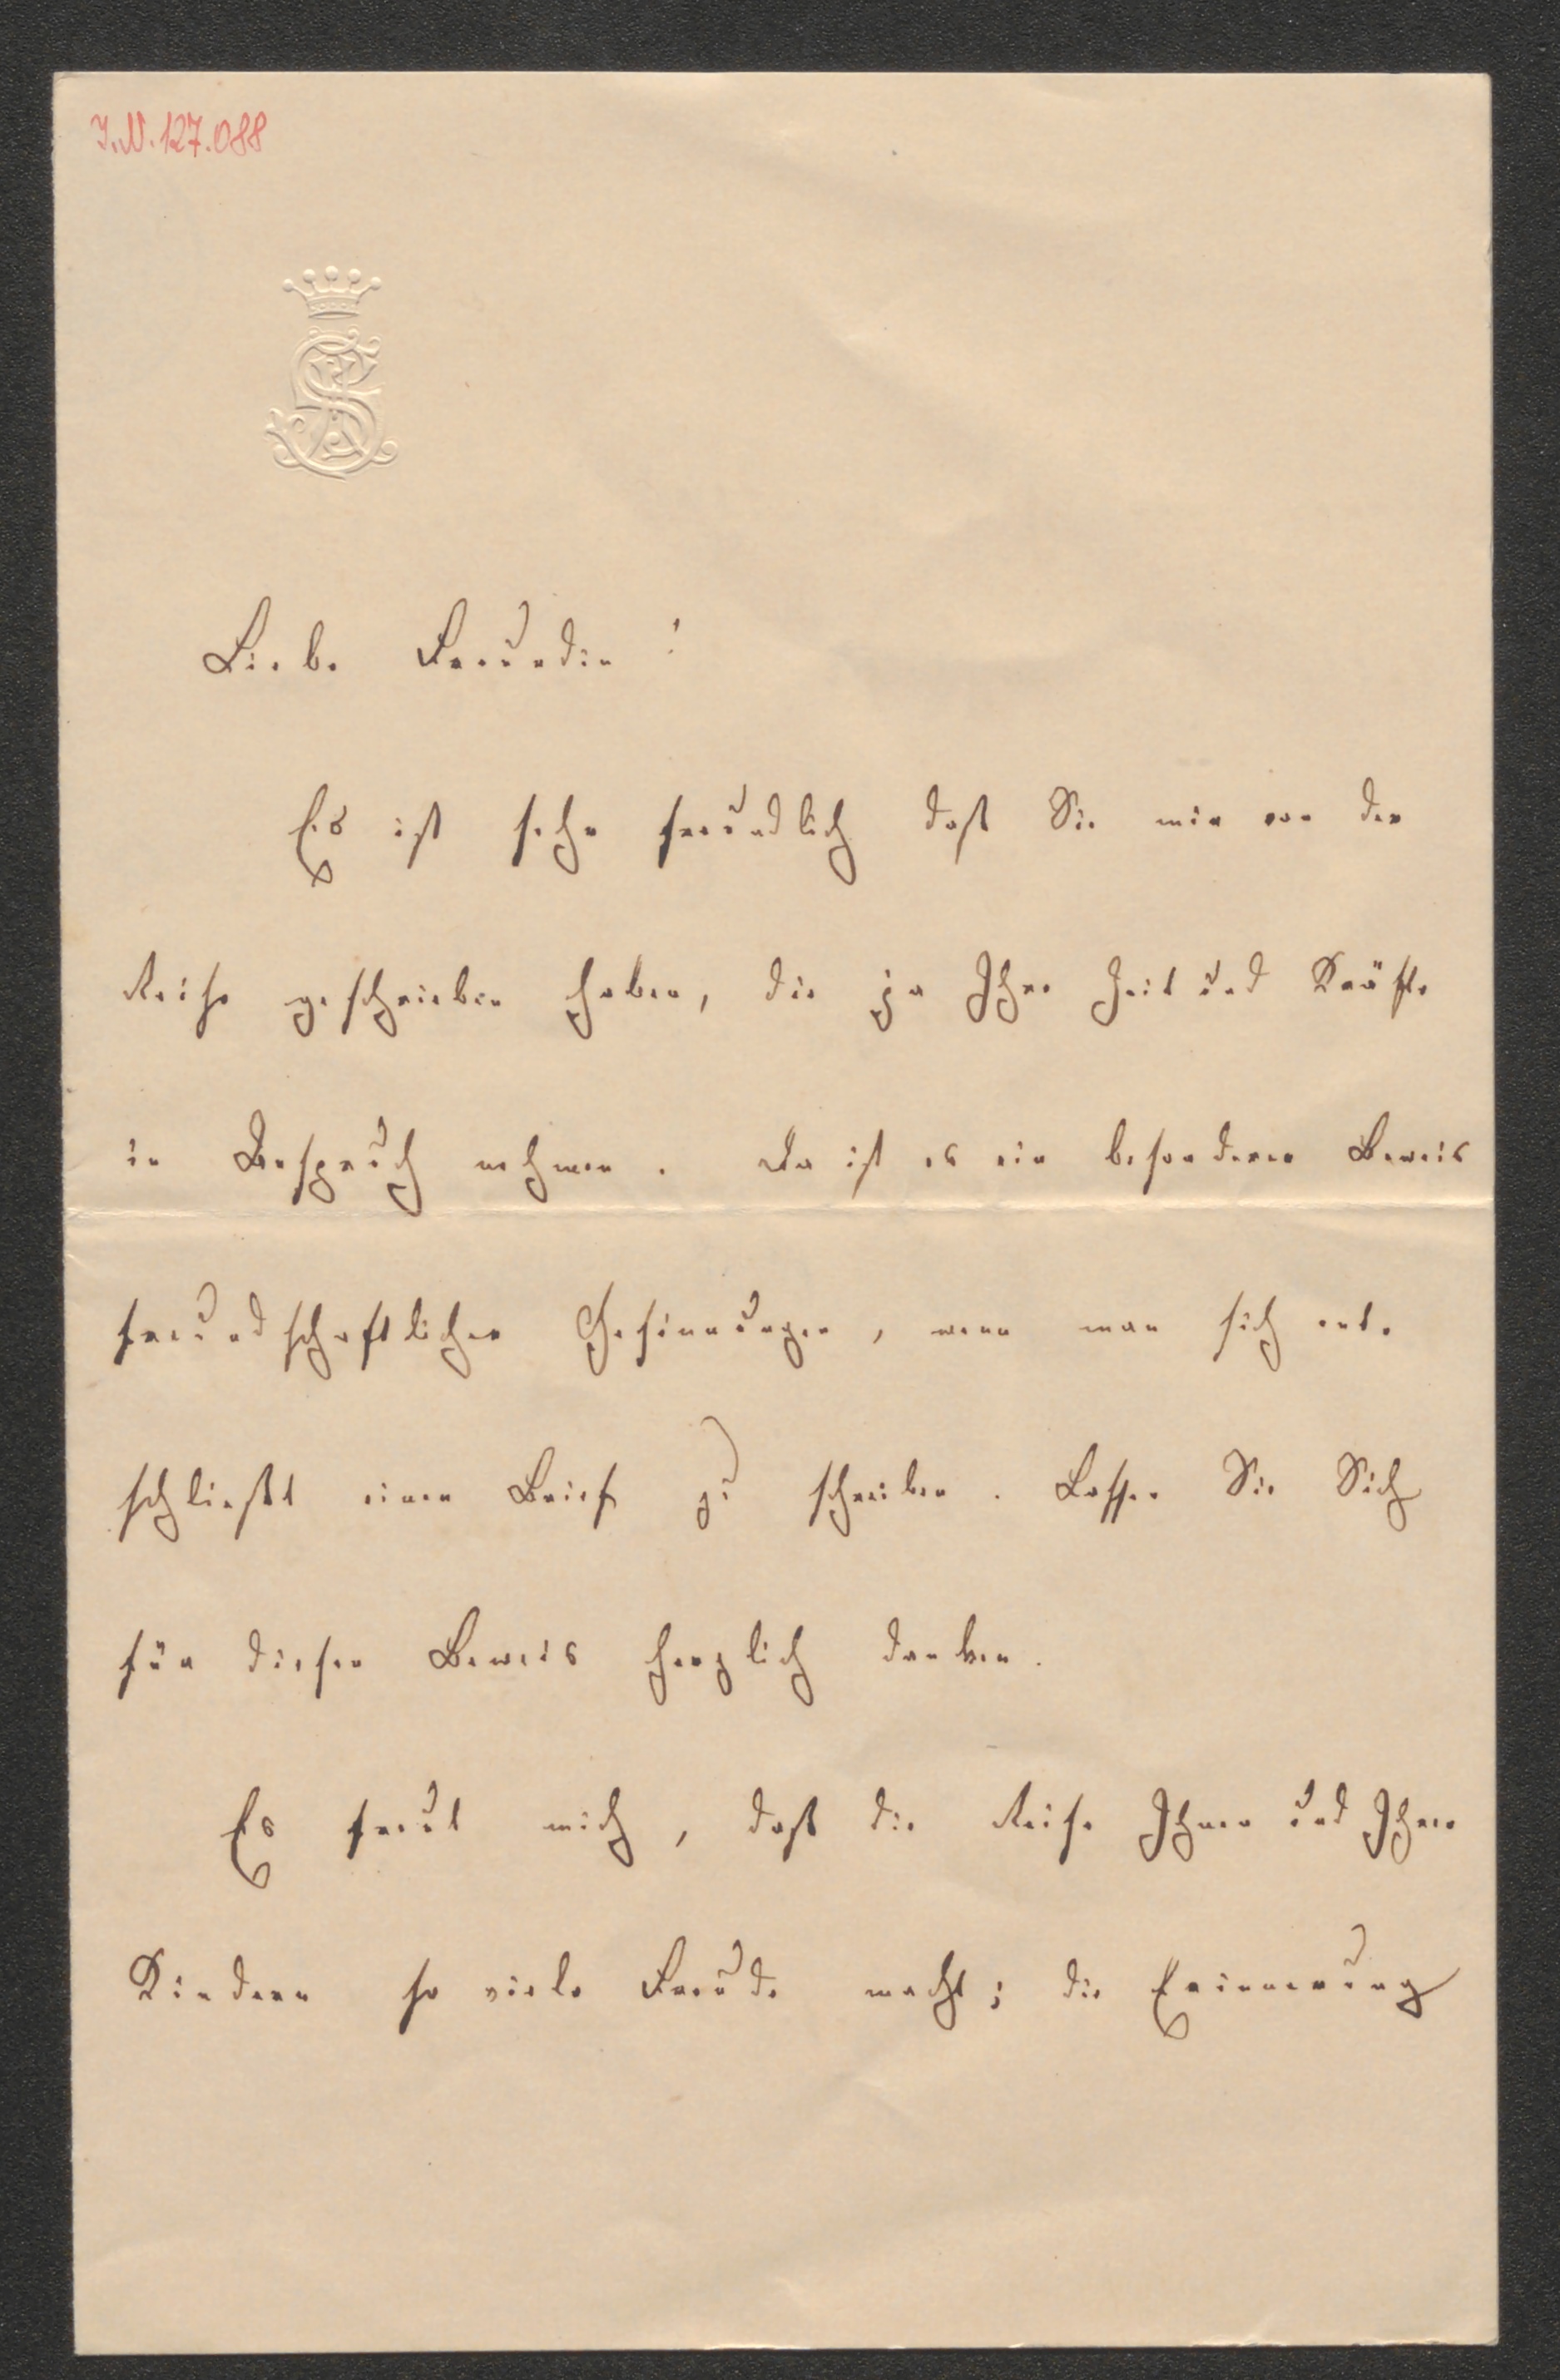 I.N. 127.088
Liebe Freundin!
Es ist sehr freundlich daß Sie mir von der
Reise geschrieben haben, die ja Ihre Zeit und Kräfte
in Anspruch nehmen. Da ist es ein besonderer Beweis
freundschaftlicher Gesinnungen, wenn man sich ent-
schließt einen Brief zu schreiben. Lassen Sie Sich
für diesen Beweis herzlich danken.
Es freut mich, daß die Reise Ihnen und Ihren
Kindern so viele Freude macht; die Erinnerung